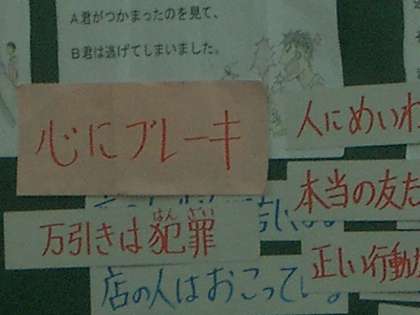 A君がつかまったのを見て、
B君は逃げてしまいました。
心にブレーキ
人にめいわ
本当の友だ
万引きは犯罪
はんざい
正しい行動
店の人はおこってい